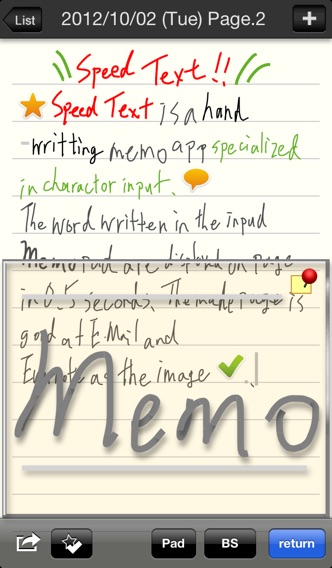 List
2012/10/02 (Tue) Page.2
+
Speed Text!!
Speed Text is a hand
-writting memo app specialized
in charactor input.
The word written in the inpud
Memo pad are displayed on page
in 0.5 seconds. The made page is
good at E.Mail and
Evernote as the image
Memo
Pad
BS
return